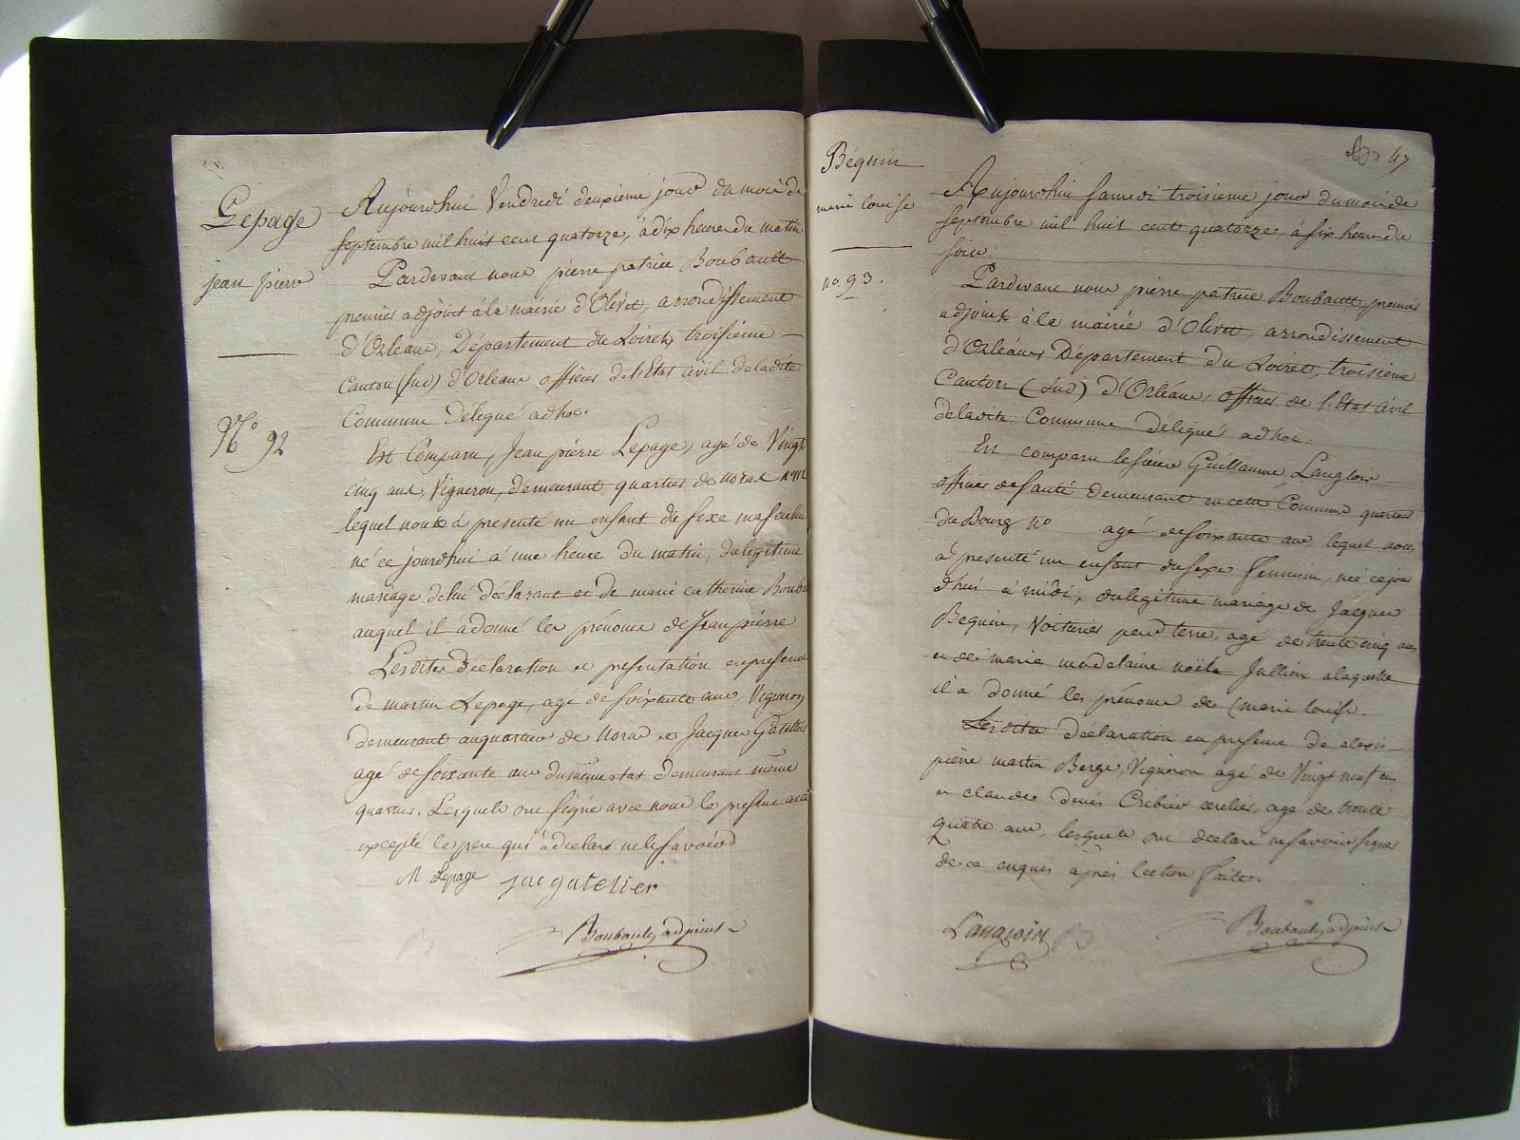 Lepage
jean pierre
N° 92
Aujourdhui Vendredi deuxieme jour du mois de
septembre mil huit cent quatorze, à dix heures du matin
Pardevant nous pierre patrice Boubault
premier adjoint à la mairie d'Olivet, arrondissement
d'Orleans, Département du Loiret, troisieme
Canton (Sud) d'Orleans officier de l'Etat Civil de ladite
Commune delegué adhoc.
Est Comparu, Jean pierre Lepage, agé de Vingt
cinq ans, Vigneron, demeurant quartier du nord
lequel nous à presenté un enfant du sexe masculin
né ce jourdhui à une heure du matin, du legitime
mariage de lui déclarant et de marie catherine
auquel il à donné les prénoms de Jean pierre
Lesdites declaration et presentation en presence
de martin Lepage, agé de soixante ans, Vigneron
demeurant au quartier du Nord et Jacques
agé de soixante ans du même etat demeurant même
quartier. Lesquels ont signé avec nous le présent acte
excepté le pere qui à declaré ne le savoir
M Lepage jacgatelier
Boubault, adjoint
47
Béguin
marie louise
no. 93.
Aujourdhui Samedi troisieme jour du mois de
septembre mil huit cent quatorze, à six heures du
soir.
Pardevant nous pierre patrice Boubault, premier
adjoint à la mairie d'Olivet, arrondissement
d'Orléans Département du Loiret, troisieme
Canton (Sud) d'Orléans, officier de l'Etat Civil
de ladite Commune délegué adhoc.
Est comparu le sieur Guillaume Langlois
officier de santé demeurant en cette Commune quartier
du Bourg no agé de soixante ans, lequel nous
à presenté un enfant du sexe feminin, née ce jour
d'hui à midi, du legitime mariage de Jacques
Beguin, Voiturier par terre, agé de trente cinq ans
et de marie madelaine noële Jullien a laquelle
il a donné les prénoms de marie louise.
Lesdites déclaration en presence de alexis
pierre martin Berge, Vigneron agé de Vingt neuf ans
et claude denis agé de trente
quatre ans, lesquels ont declaré ne savoir signer
de ce enquis après lecture faite.
Boubault, adjoint